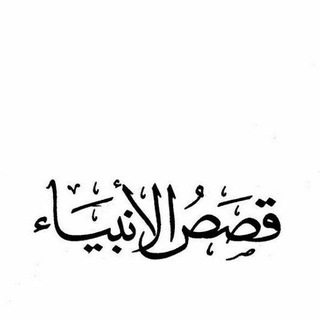 قصص الأنبياء